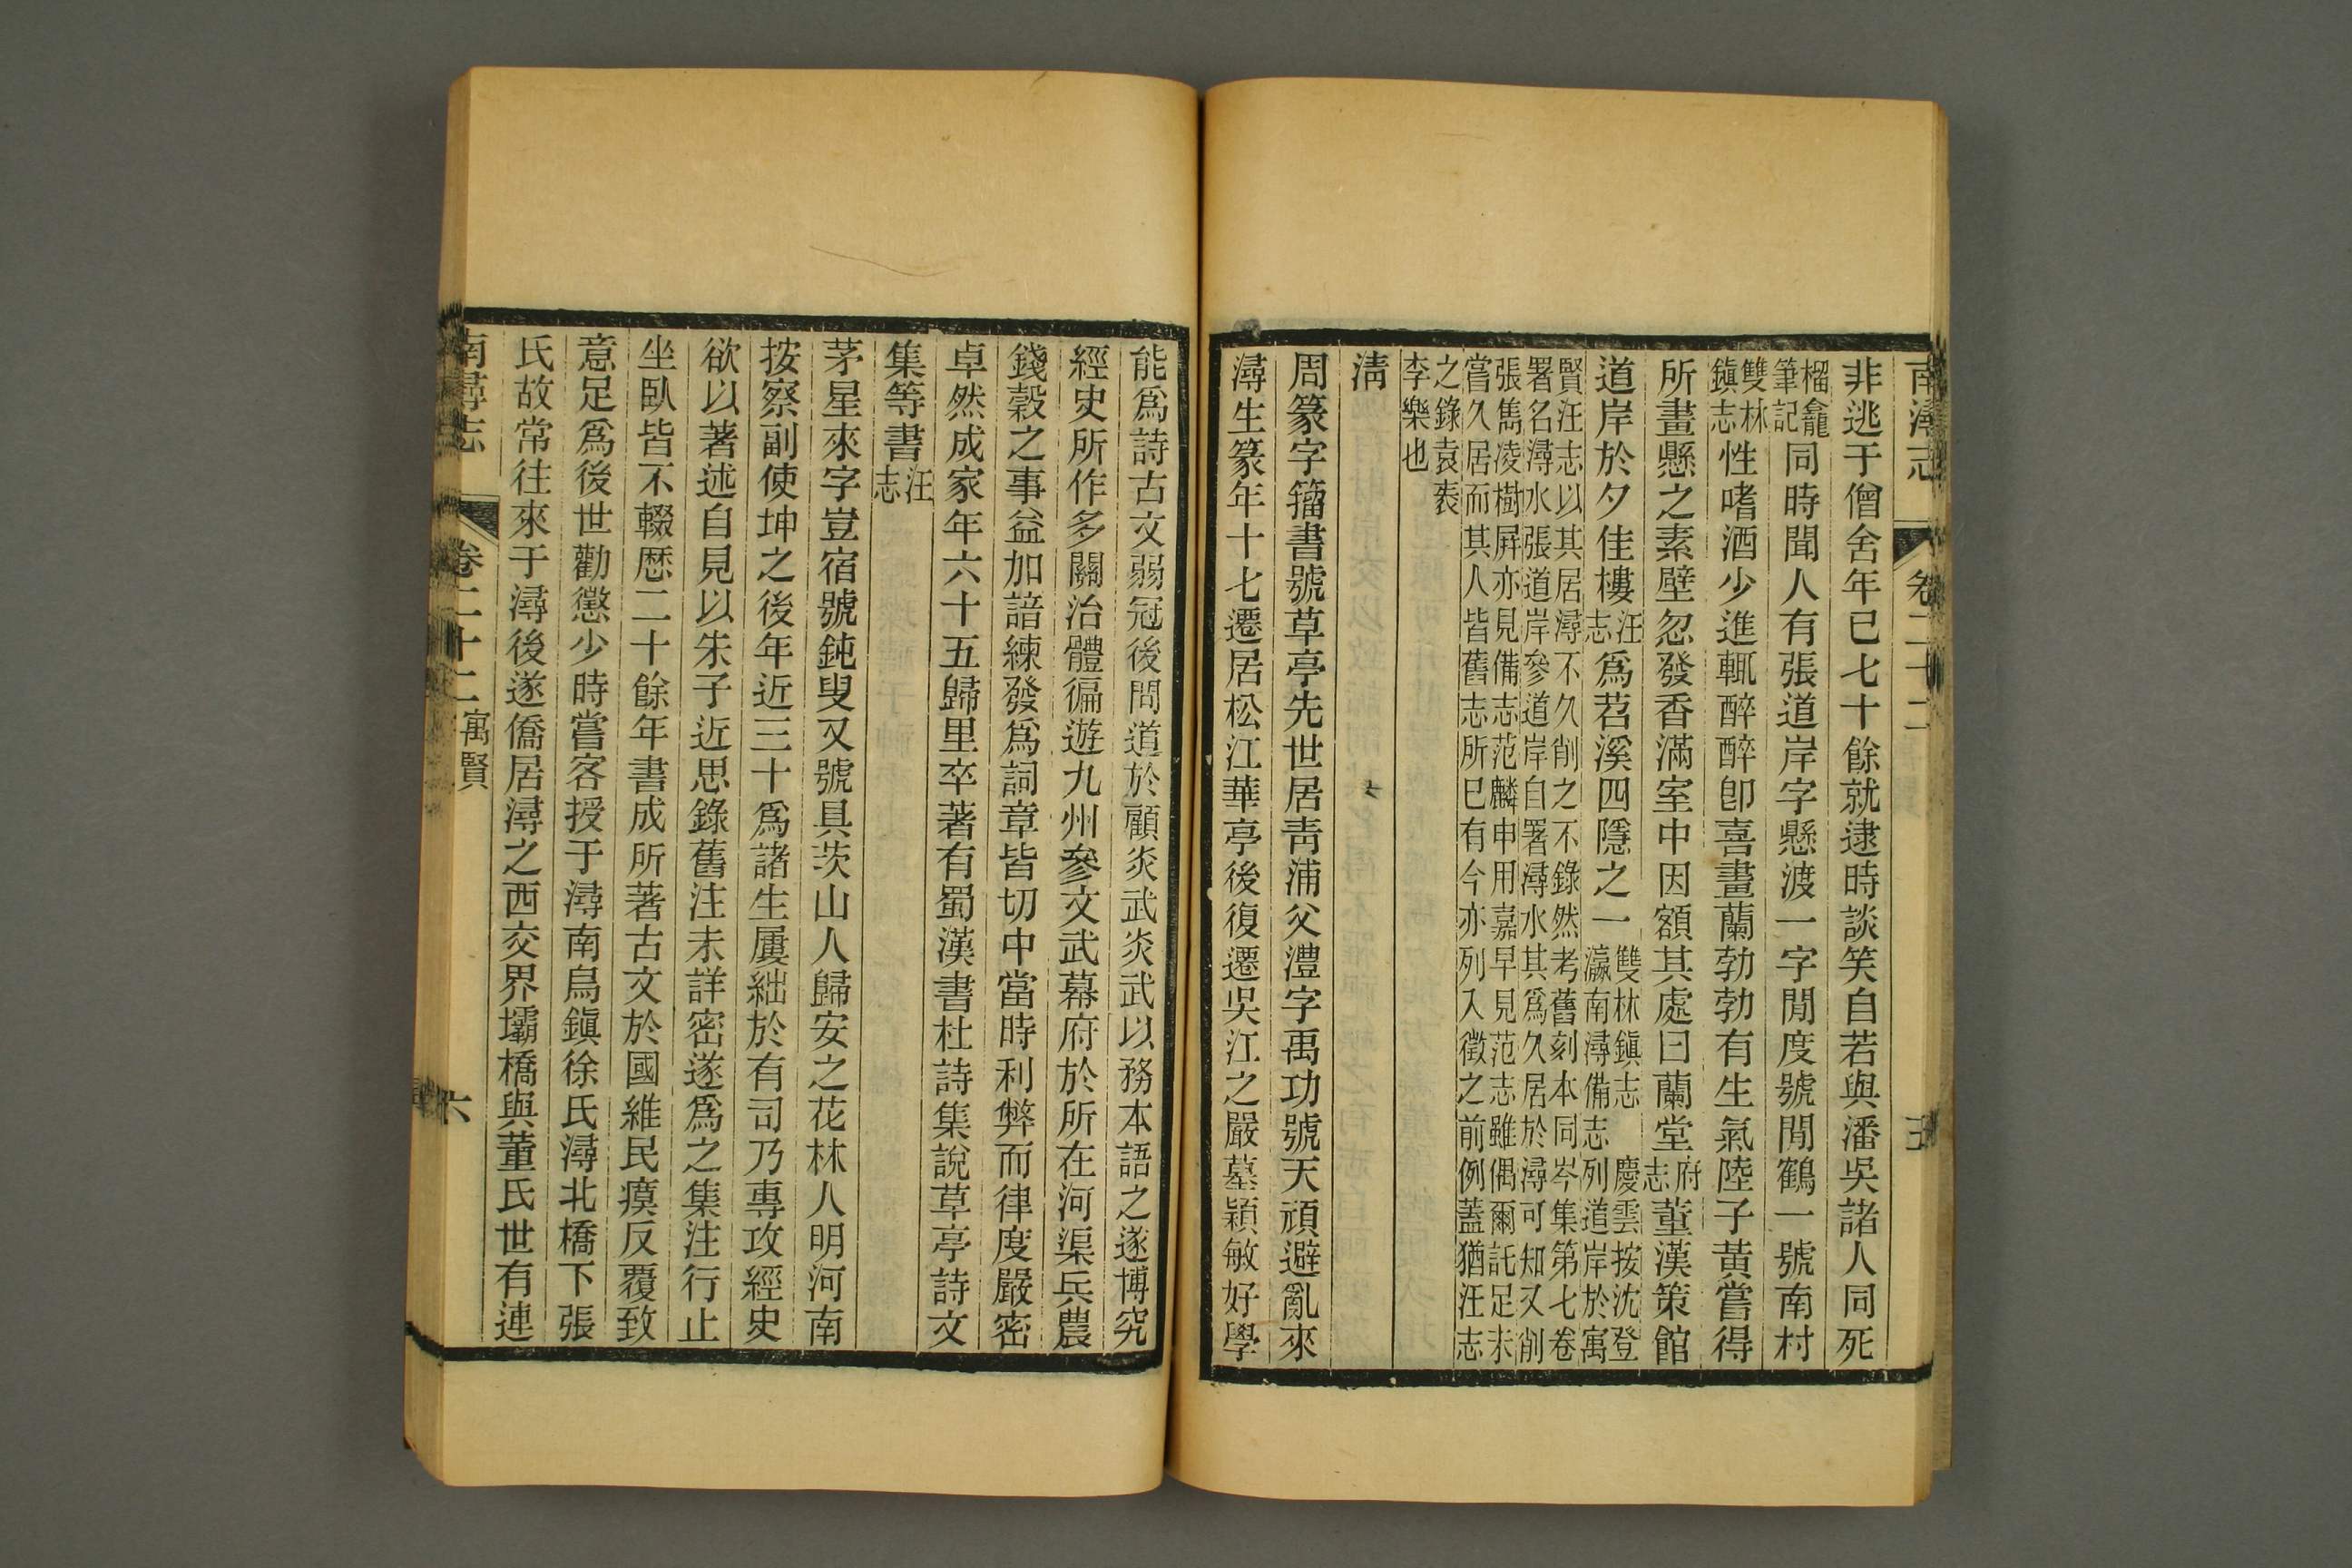 南潯志 卷二十二 五
非逃于僧舍年已七十餘就逮時談笑自若與潘吳諸人同死
榴龕筆記同時聞人有張道岸字懸渡一字閒度號閒鶴一號南村
雙林鎮志性嗜酒少進輒醉醉卽喜畫蘭勃勃有生氣陸子黃嘗得
所畫懸之素壁忽發香滿室中因額其處曰蘭堂府志董漢策館
道岸於夕佳樓汪志爲苕溪四隱之一雙林鎮志瀛南潯備志慶雲按沈登列道岸於寓
賢汪志以其居潯不久削之不錄然考舊刻本同岑集第七卷
署名潯水張道岸參道岸自署潯水其爲久居於潯可知又削
張雋凌樹屏亦見備志范麟申用嘉早見范志雖偶爾託足未
嘗久居而其人皆舊志所已有今亦列入徵之前例蓋猶汪志
之錄袁袠
李樂也
淸
周篆字籀書號草亭先世居靑浦父澧字禹功號天頑避亂來
潯生篆年十七遷居松江華亭後復遷吳江之嚴墓穎敏好學
能爲詩古文弱冠後問道於顧炎武炎武以務本語之遂博究
經史所作多關治體徧遊九州參文武幕府於所在河渠兵農
錢穀之事益加諳練發爲詞章皆切中當時利弊而律度嚴密
卓然成家年六十五歸里卒著有蜀漢書杜詩集說草亭詩文
集等書汪志
茅星來字豈宿號鈍叟又號具茨山人歸安之花林人明河南
按察副使坤之後年近三十爲諸生屢絀於有司乃專攻經史
欲以著述自見以朱子近思錄舊注未詳密遂爲之集注行止
坐臥皆不輟歷二十餘年書成所著古文於國維民瘼反覆致
意足爲後世勸懲少時嘗客授于潯南烏鎮徐氏潯北橋下張
氏故常往來于潯後遂僑居潯之西交界壩橋與董氏世有連
南潯志 卷二十二 寓賢 六